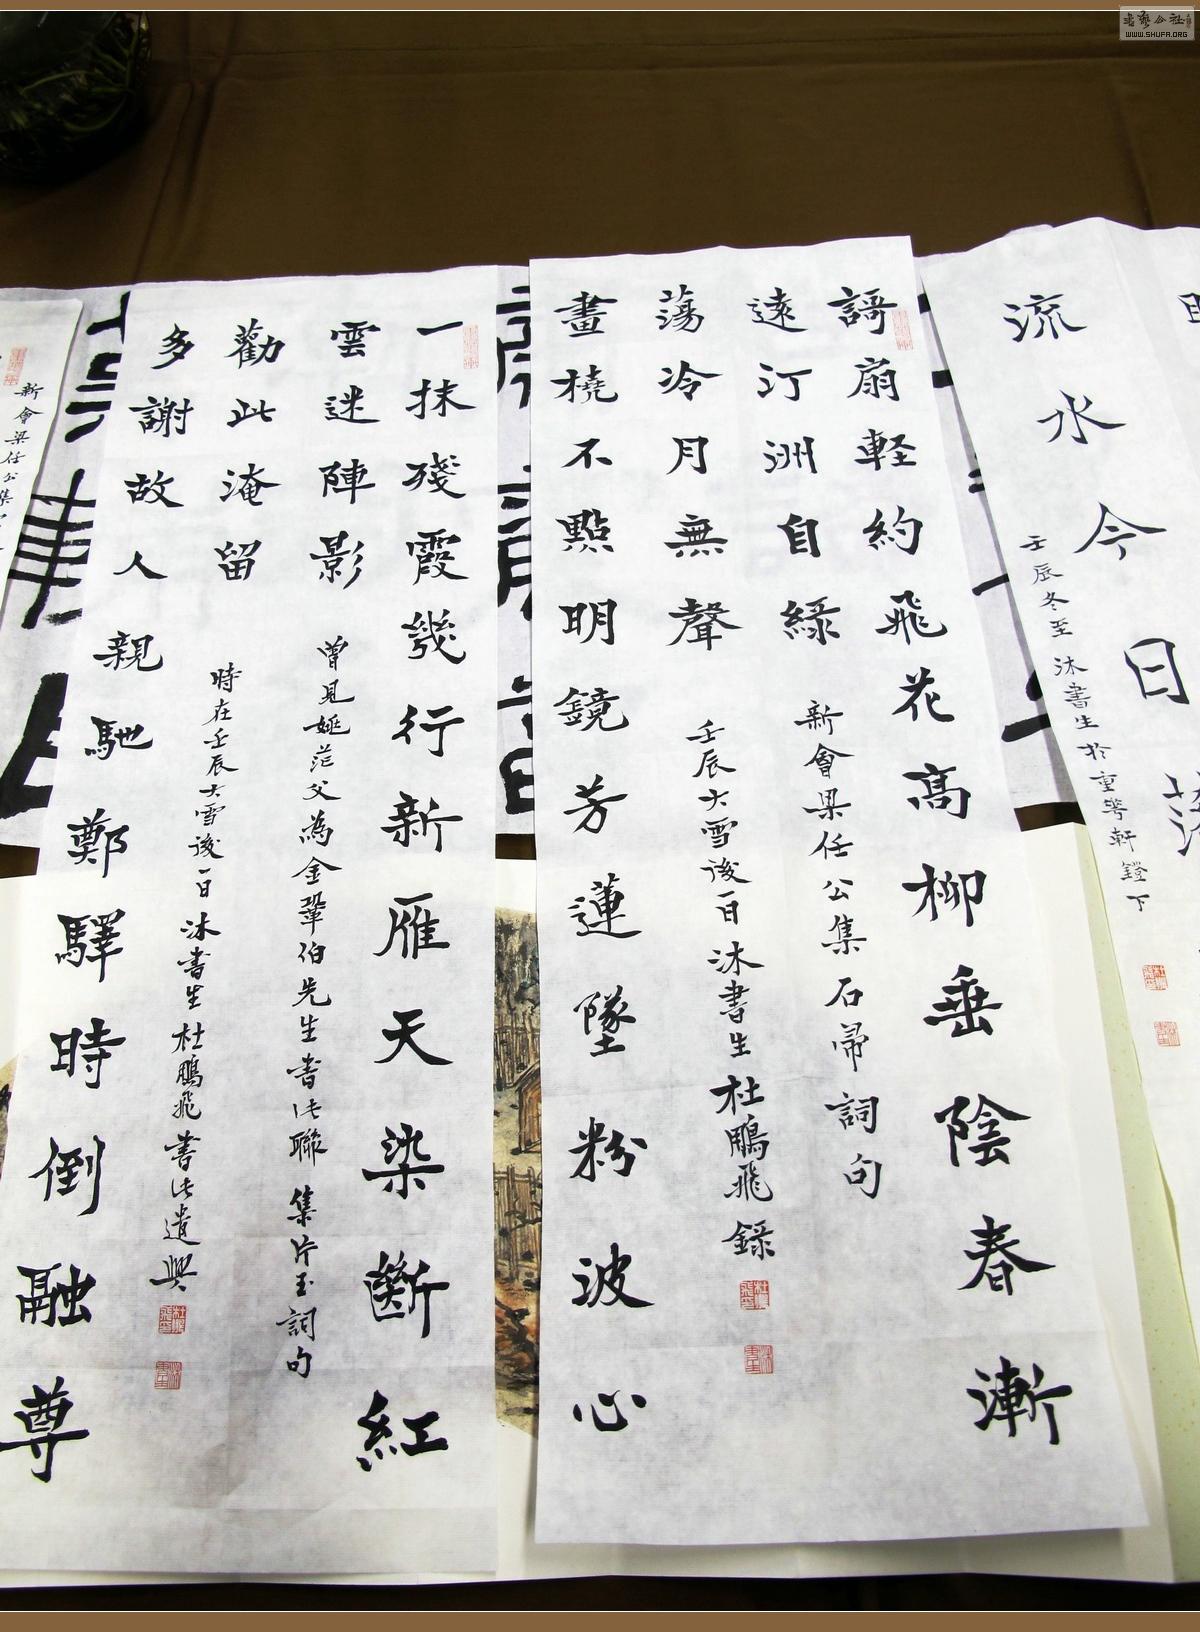 流水今日
壬辰冬至沐書生於重萼軒鐙下
謌扇軽約飛花高柳垂陰春漸
遠汀洲自緑
新會梁任公集石帚詞句
蕩冷月無聲
壬辰大雪後一日沐書生杜鵬飛錄
畫橈不點明鏡芳蓮墜粉波心
一抹殘霞幾行新雁天染斷紅
雲迷陣影
曾見姚茫父為金鞏伯先生書此聯 集片玉詞句
勸此淹留
時在壬辰大雪後一日沐書生杜鵬飛書此遣興
多謝故人親馳鄭驛時倒融尊
新會梁任公集
WWW.SHUFA.ORG